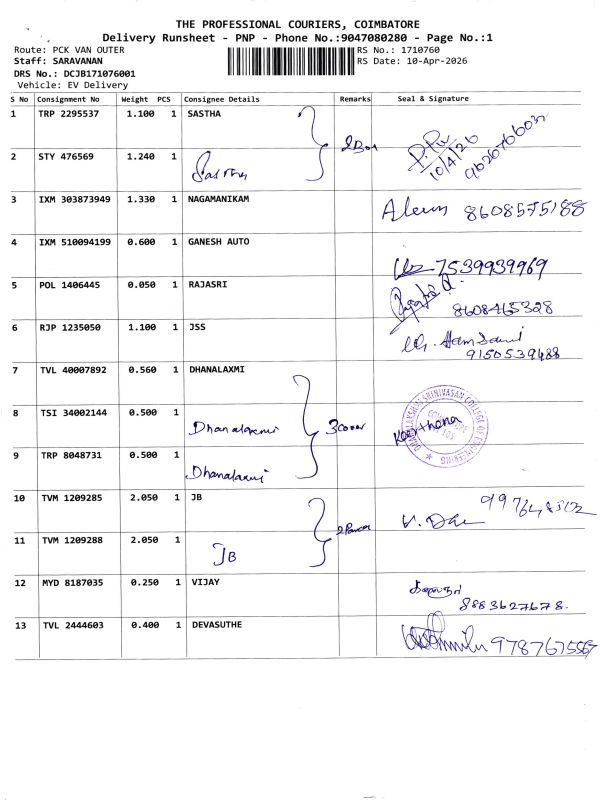 THE PROFESSIONAL COURIERS, COIMBATORE
Delivery Runsheet - PNP - Phone No.:9047080280 - Page No.:1
Route: PCK VAN OUTER RS No.: 1710760
Staff: SARAVANAN RS Date: 10-Apr-2026
DRS No.: DCJB171076001
Vehicle: EV Delivery
S No Consignment No Weight PCS Consignee Details Remarks Seal & Signature
1 TRP 2295537 1.100 1 SASTHA
10/4/26
2 STY 476569 1.240 1 Sastha
3 IXM 303873949 1.330 1 NAGAMANIKAM
8608575188
4 IXM 510094199 0.600 1 GANESH AUTO
7539939969
5 POL 1406445 0.050 1 RAJASRI
8608465328
6 RJP 1235050 1.100 1 JSS
9150539488
7 TVL 40007892 0.560 1 DHANALAXMI
8 TSI 34002144 0.500 1 Dhanalaxmi 3 Keerthana
DHANALAKSHMI SRINIVASAN COLLEGE OF ENGINEERING
9 TRP 8048731 0.500 1
Dhanalaxmi
10 TVM 1209285 2.050 1 JB
11 TVM 1209288 2.050 1
JB
12 MYD 8187035 0.250 1 VIJAY
8883627678.
13 TVL 2444603 0.400 1 DEVASUTHE